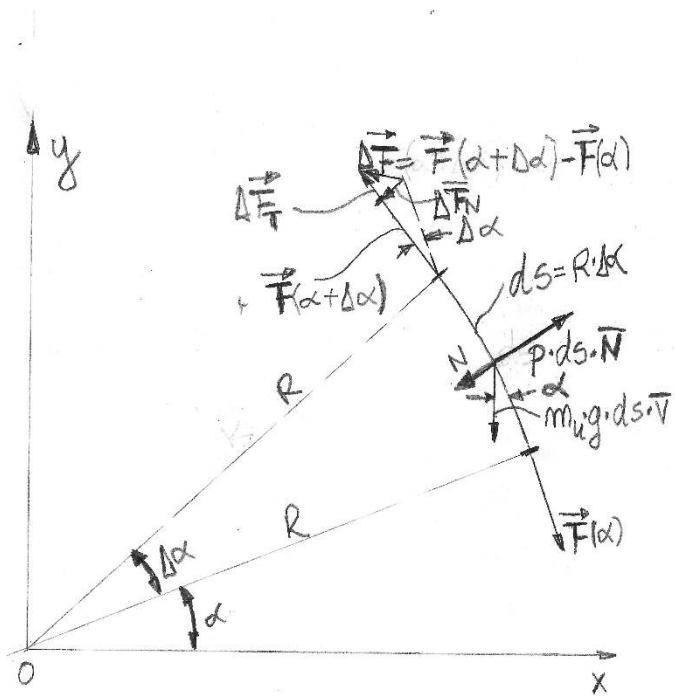 y
ΔF⃗ = F⃗(α+Δα) - F⃗(α)
ΔF⃗_T
ΔF̅_N
Δα
F⃗(α+Δα)
ds=R·Δα
N
p·ds·N̅
α
m_u·g·ds·V̅
R
R
F⃗(α)
Δα
α
O
x